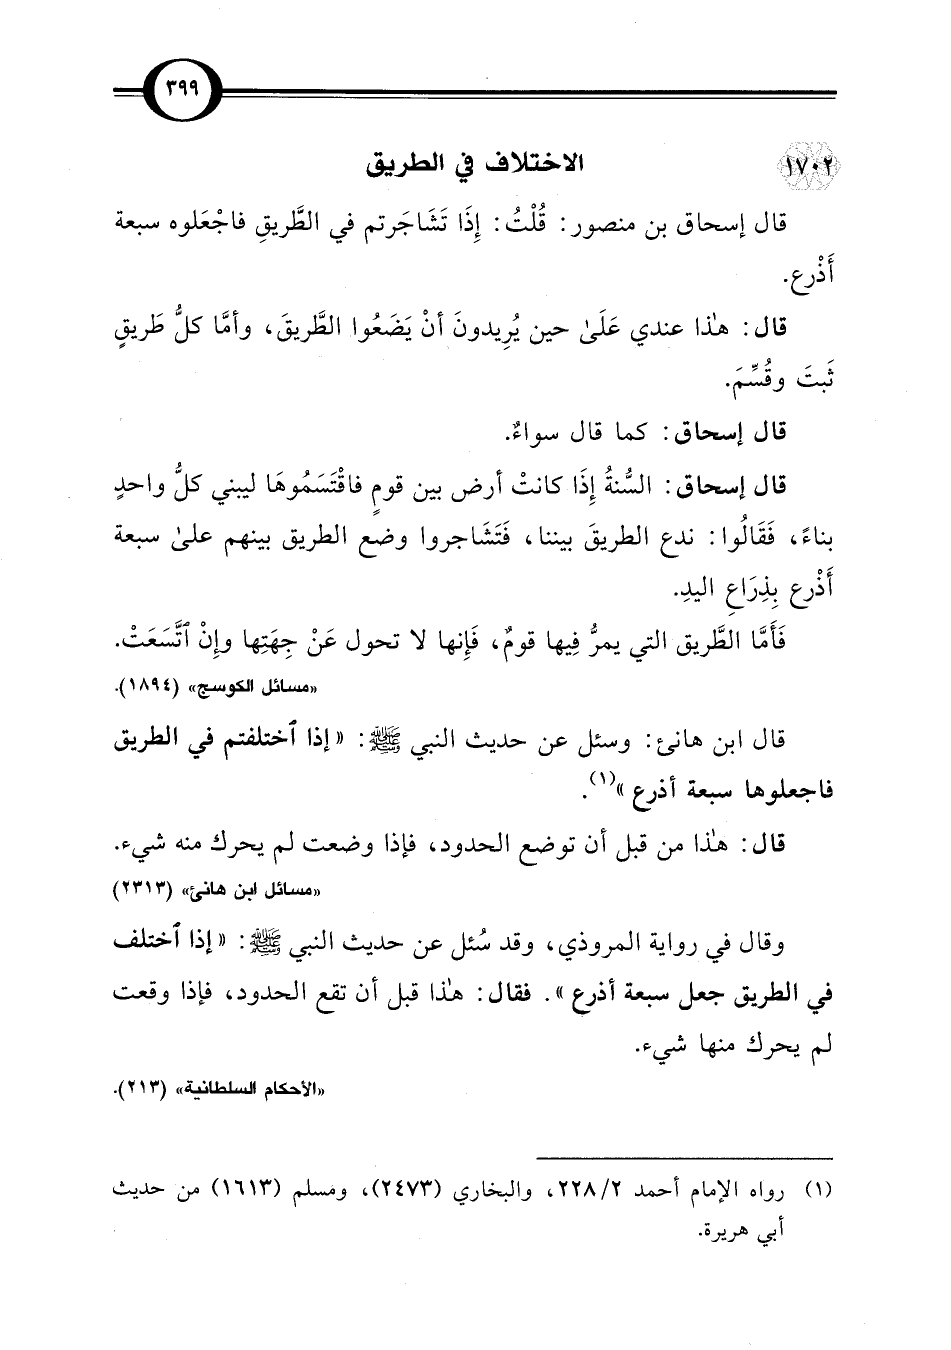 ٣٩٩
١٧٠٢ الاختلاف في الطريق
قال إسحاق بن منصور: قُلْتُ: إِذَا تَشَاجَرتم في الطَّريقِ فاجْعَلوه سبعة
أَذْرع.
قال: هٰذا عندي عَلَىٰ حين يُرِيدونَ أنْ يَضَعُوا الطَّريقَ، وأمَّا كلُّ طَريقٍ
ثَبتَ وقُسِّمَ.
قال إسحاق: كما قال سواءٌ.
قال إسحاق: السُّنةُ إِذَا كانتْ أرض بين قومٍ فاقْتَسَمُوهَا ليبني كلُّ واحدٍ
بناءً، فَقَالُوا: ندع الطريقَ بيننا، فَتَشَاجروا وضع الطريق بينهم علىٰ سبعة
أَذْرع بِذِرَاعِ اليدِ.
فَأمَّا الطَّريق التي يمرُّ فِيها قومٌ، فَإنها لا تحول عَنْ جِهَتِها وإِنْ ٱتَّسَعَتْ.
«مسائل الكوسج» (١٨٩٤).
قال ابن هانئ: وسئل عن حديث النبي ﷺ: «إذا ٱختلفتم في الطريق
فاجعلوها سبعة أذرع»(١).
قال: هٰذا من قبل أن توضع الحدود، فإذا وضعت لم يحرك منه شيء.
«مسائل ابن هانئ» (٢٣١٣)
وقال في رواية المروذي، وقد سُئل عن حديث النبي ﷺ: «إذا ٱختلف
في الطريق جعل سبعة أذرع». فقال: هٰذا قبل أن تقع الحدود، فإذا وقعت
لم يحرك منها شيء.
«الأحكام السلطانية» (٢١٣).
(١) رواه الإمام أحمد ٢/ ٢٢٨، والبخاري (٢٤٧٣)، ومسلم (١٦١٣) من حديث
أبي هريرة.